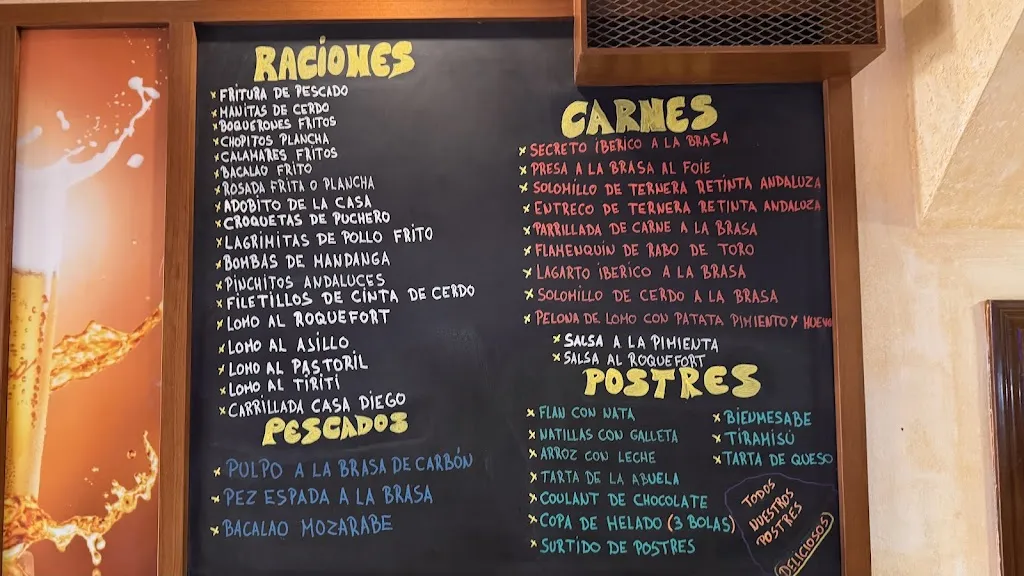 RACIONES
× FRITURA DE PESCADO
× MANITAS DE CERDO
× BOQUERONES FRITOS
× CHOPITOS PLANCHA
× CALAMARES FRITOS
× BACALAO FRITO
× ROSADA FRITA O PLANCHA
× ADOBITO DE LA CASA
× CROQUETAS DE PUCHERO
× LAGRIMITAS DE POLLO FRITO
× BOMBAS DE MANDANGA
× PINCHITOS ANDALUCES
× FILETILLOS DE CINTA DE CERDO
× LOMO AL ROQUEFORT
× LOMO AL AJILLO
× LOMO AL PASTORIL
× LOMO AL TIRITI
× CARRILLADA CASA DIEGO
PESCADOS
× PULPO A LA BRASA DE CARBÓN
× PEZ ESPADA A LA BRASA
× BACALAO MOZARABE
CARNES
× SECRETO IBERICO A LA BRASA
× PRESA A LA BRASA AL FOIE
× SOLOMILLO DE TERNERA RETINTA ANDALUZA
× ENTRECO DE TERNERA RETINTA ANDALUZA
× PARRILLADA DE CARNE A LA BRASA
× FLAMENQUIN DE RABO DE TORO
× LAGARTO IBERICO A LA BRASA
× SOLOMILLO DE CERDO A LA BRASA
× PELONA DE LOMO CON PATATA PIMIENTO Y HUEVO
× SALSA A LA PIMIENTA
× SALSA AL ROQUEFORT
POSTRES
× FLAN CON NATA
× NATILLAS CON GALLETA
× ARROZ CON LECHE
× TARTA DE LA ABUELA
× COULANT DE CHOCOLATE
× COPA DE HELADO (3 BOLAS)
× SURTIDO DE POSTRES
× BIEUMESABE
× TIRAMISÚ
× TARTA DE QUESO
TODOS
NUESTROS
POSTRES
DELICIOSOS